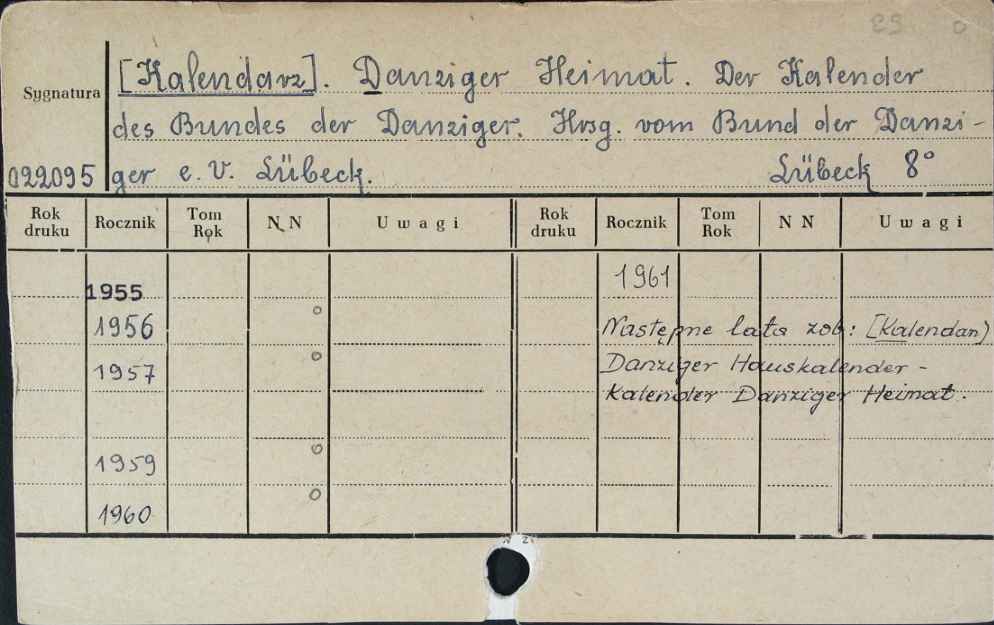 [Kalendarz]. Danziger Heimat. Der Kalender
Sygnatura
des Bundes der Danziger. Hrsg. vom Bund der Danzi-
022095 ger e. V. Lübeck. Lübeck 8°
Rok druku Rocznik Tom Rok N N Uwagi Rok druku Rocznik Tom Rok N N Uwagi
1955 1961
1956 Następne lata zob: [Kalendarz)
1957 Danziger Hauskalender -
Kalender Danziger Heimat.
1959
1960